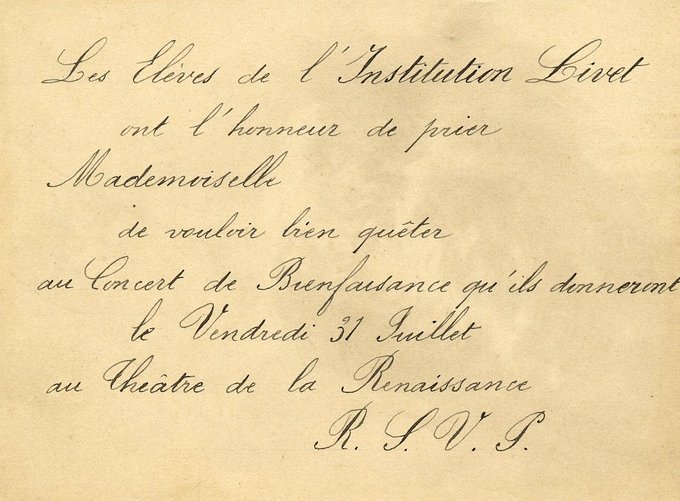 Les Elèves de l'Institution Livet
ont l'honneur de prier
Mademoiselle
de vouloir bien quêter
au Concert de Bienfaisance qu'ils donneront
le Vendredi 31 Juillet
au Théâtre de la Renaissance
R. S. V. P.